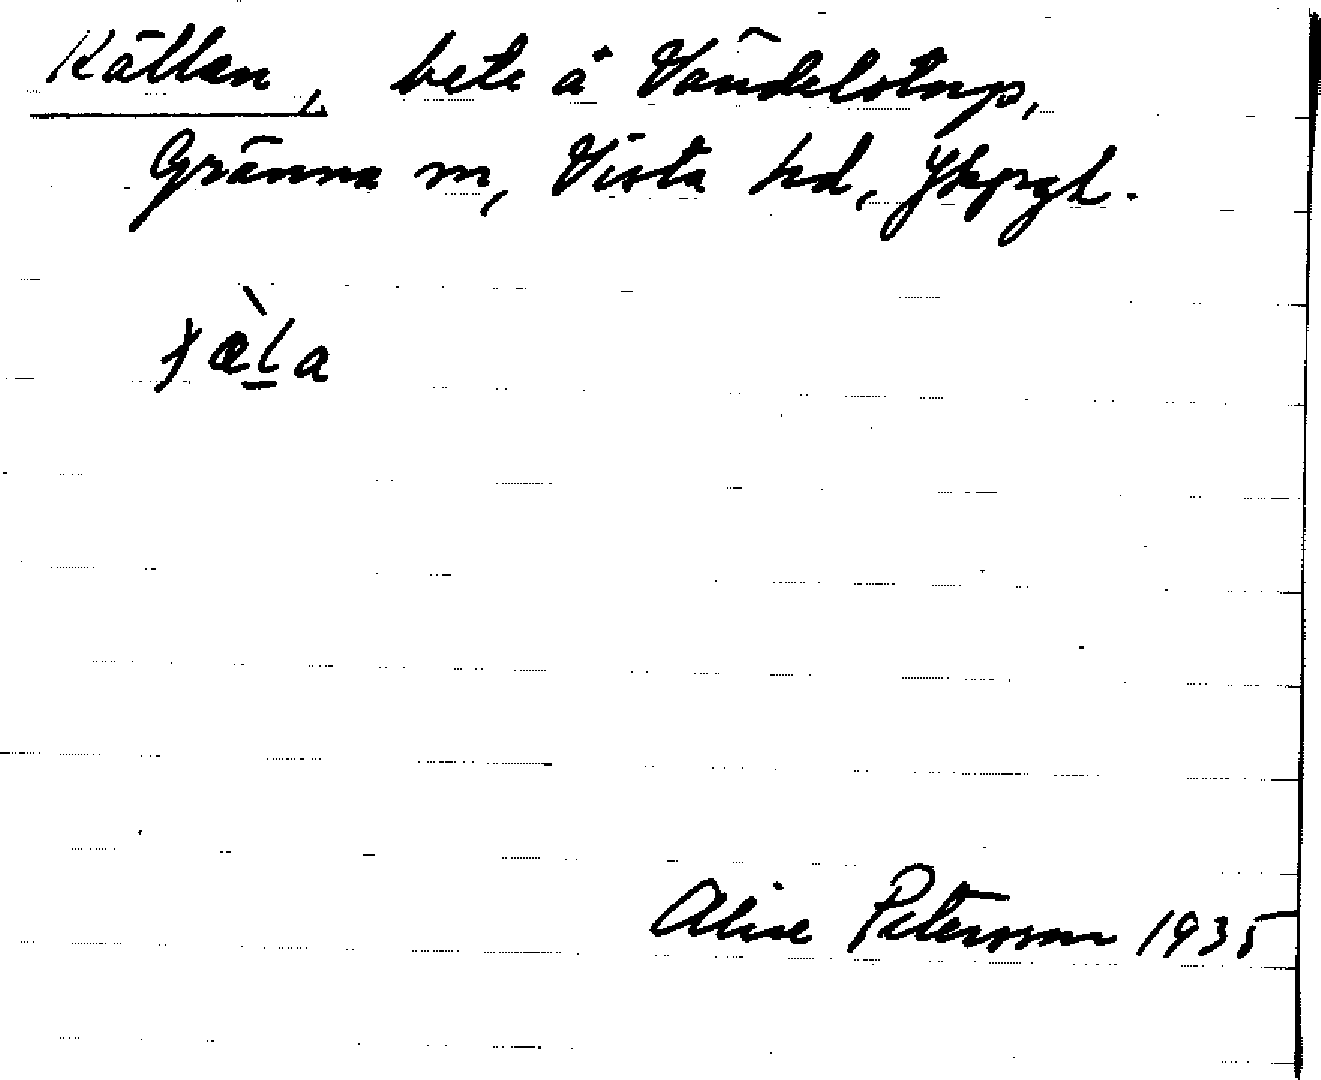 Källan, bete å Vändelstorp,
Gränna sn, Vista hd, Jkpgl.
Alice Petersson 1935